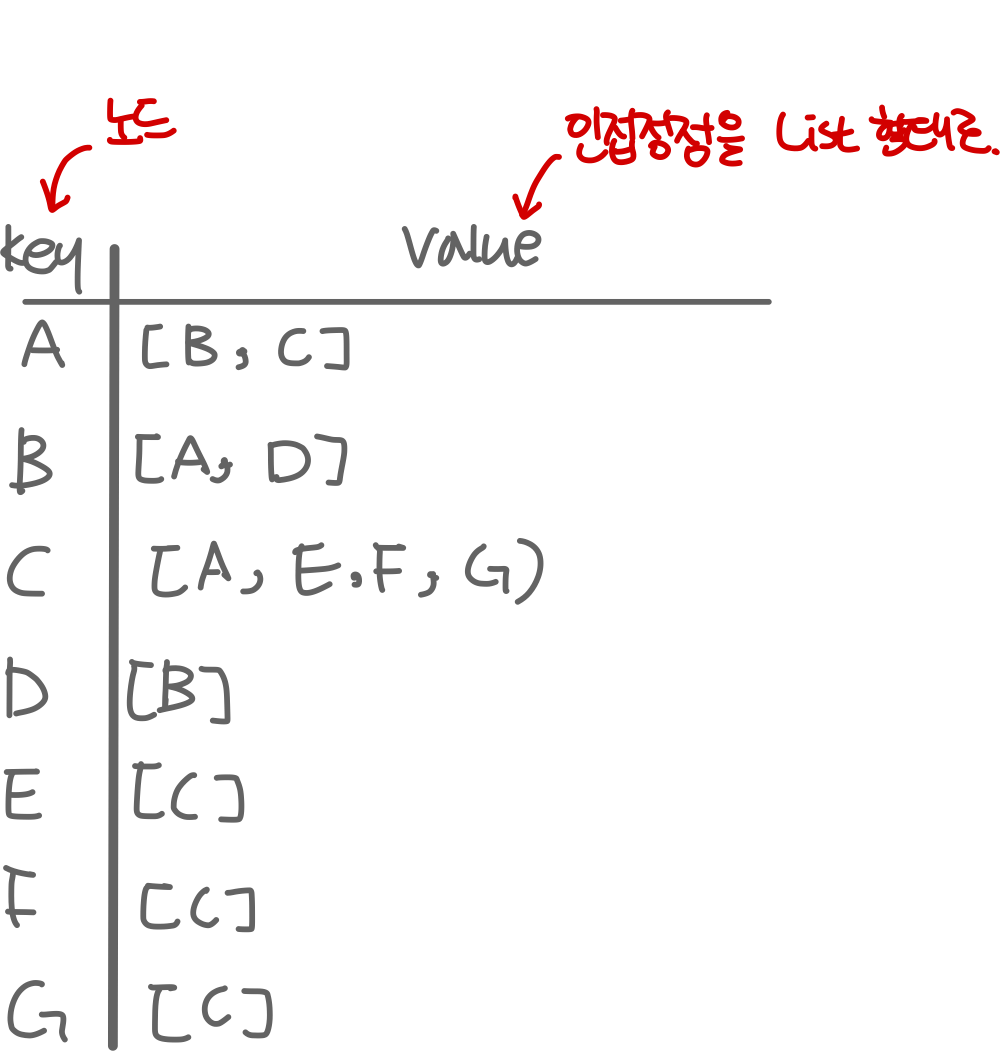 노드
인접정점을 List 형태로.
key value
A [B, C]
B [A, D]
C [A, E.F, G)
D [B]
E [C]
F [C]
G [C]